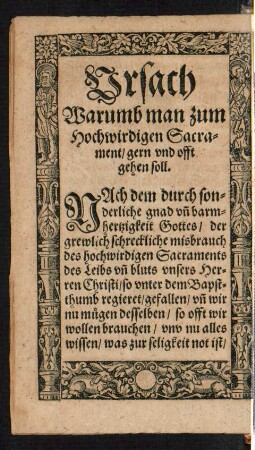 Vrsach
Warumb man zum
Hochwirdigen Sacra-
ment/gern vnd offt
gehen soll.
NAch dem durch son-
derliche gnad vñ barm-
hertzigkeit Gottes/ der
grewlich schreckliche misbrauch
des hochwirdigen Sacraments
des Leibs vñ bluts vnsers Her-
ren Christi/so vnter dem Bapst-
thumb regieret/gefallen/ vñ wir
nu mügen desselben/ so offt wir
wollen brauchen/ vnd nu alles
wissen/ was zur seligkeit not ist/